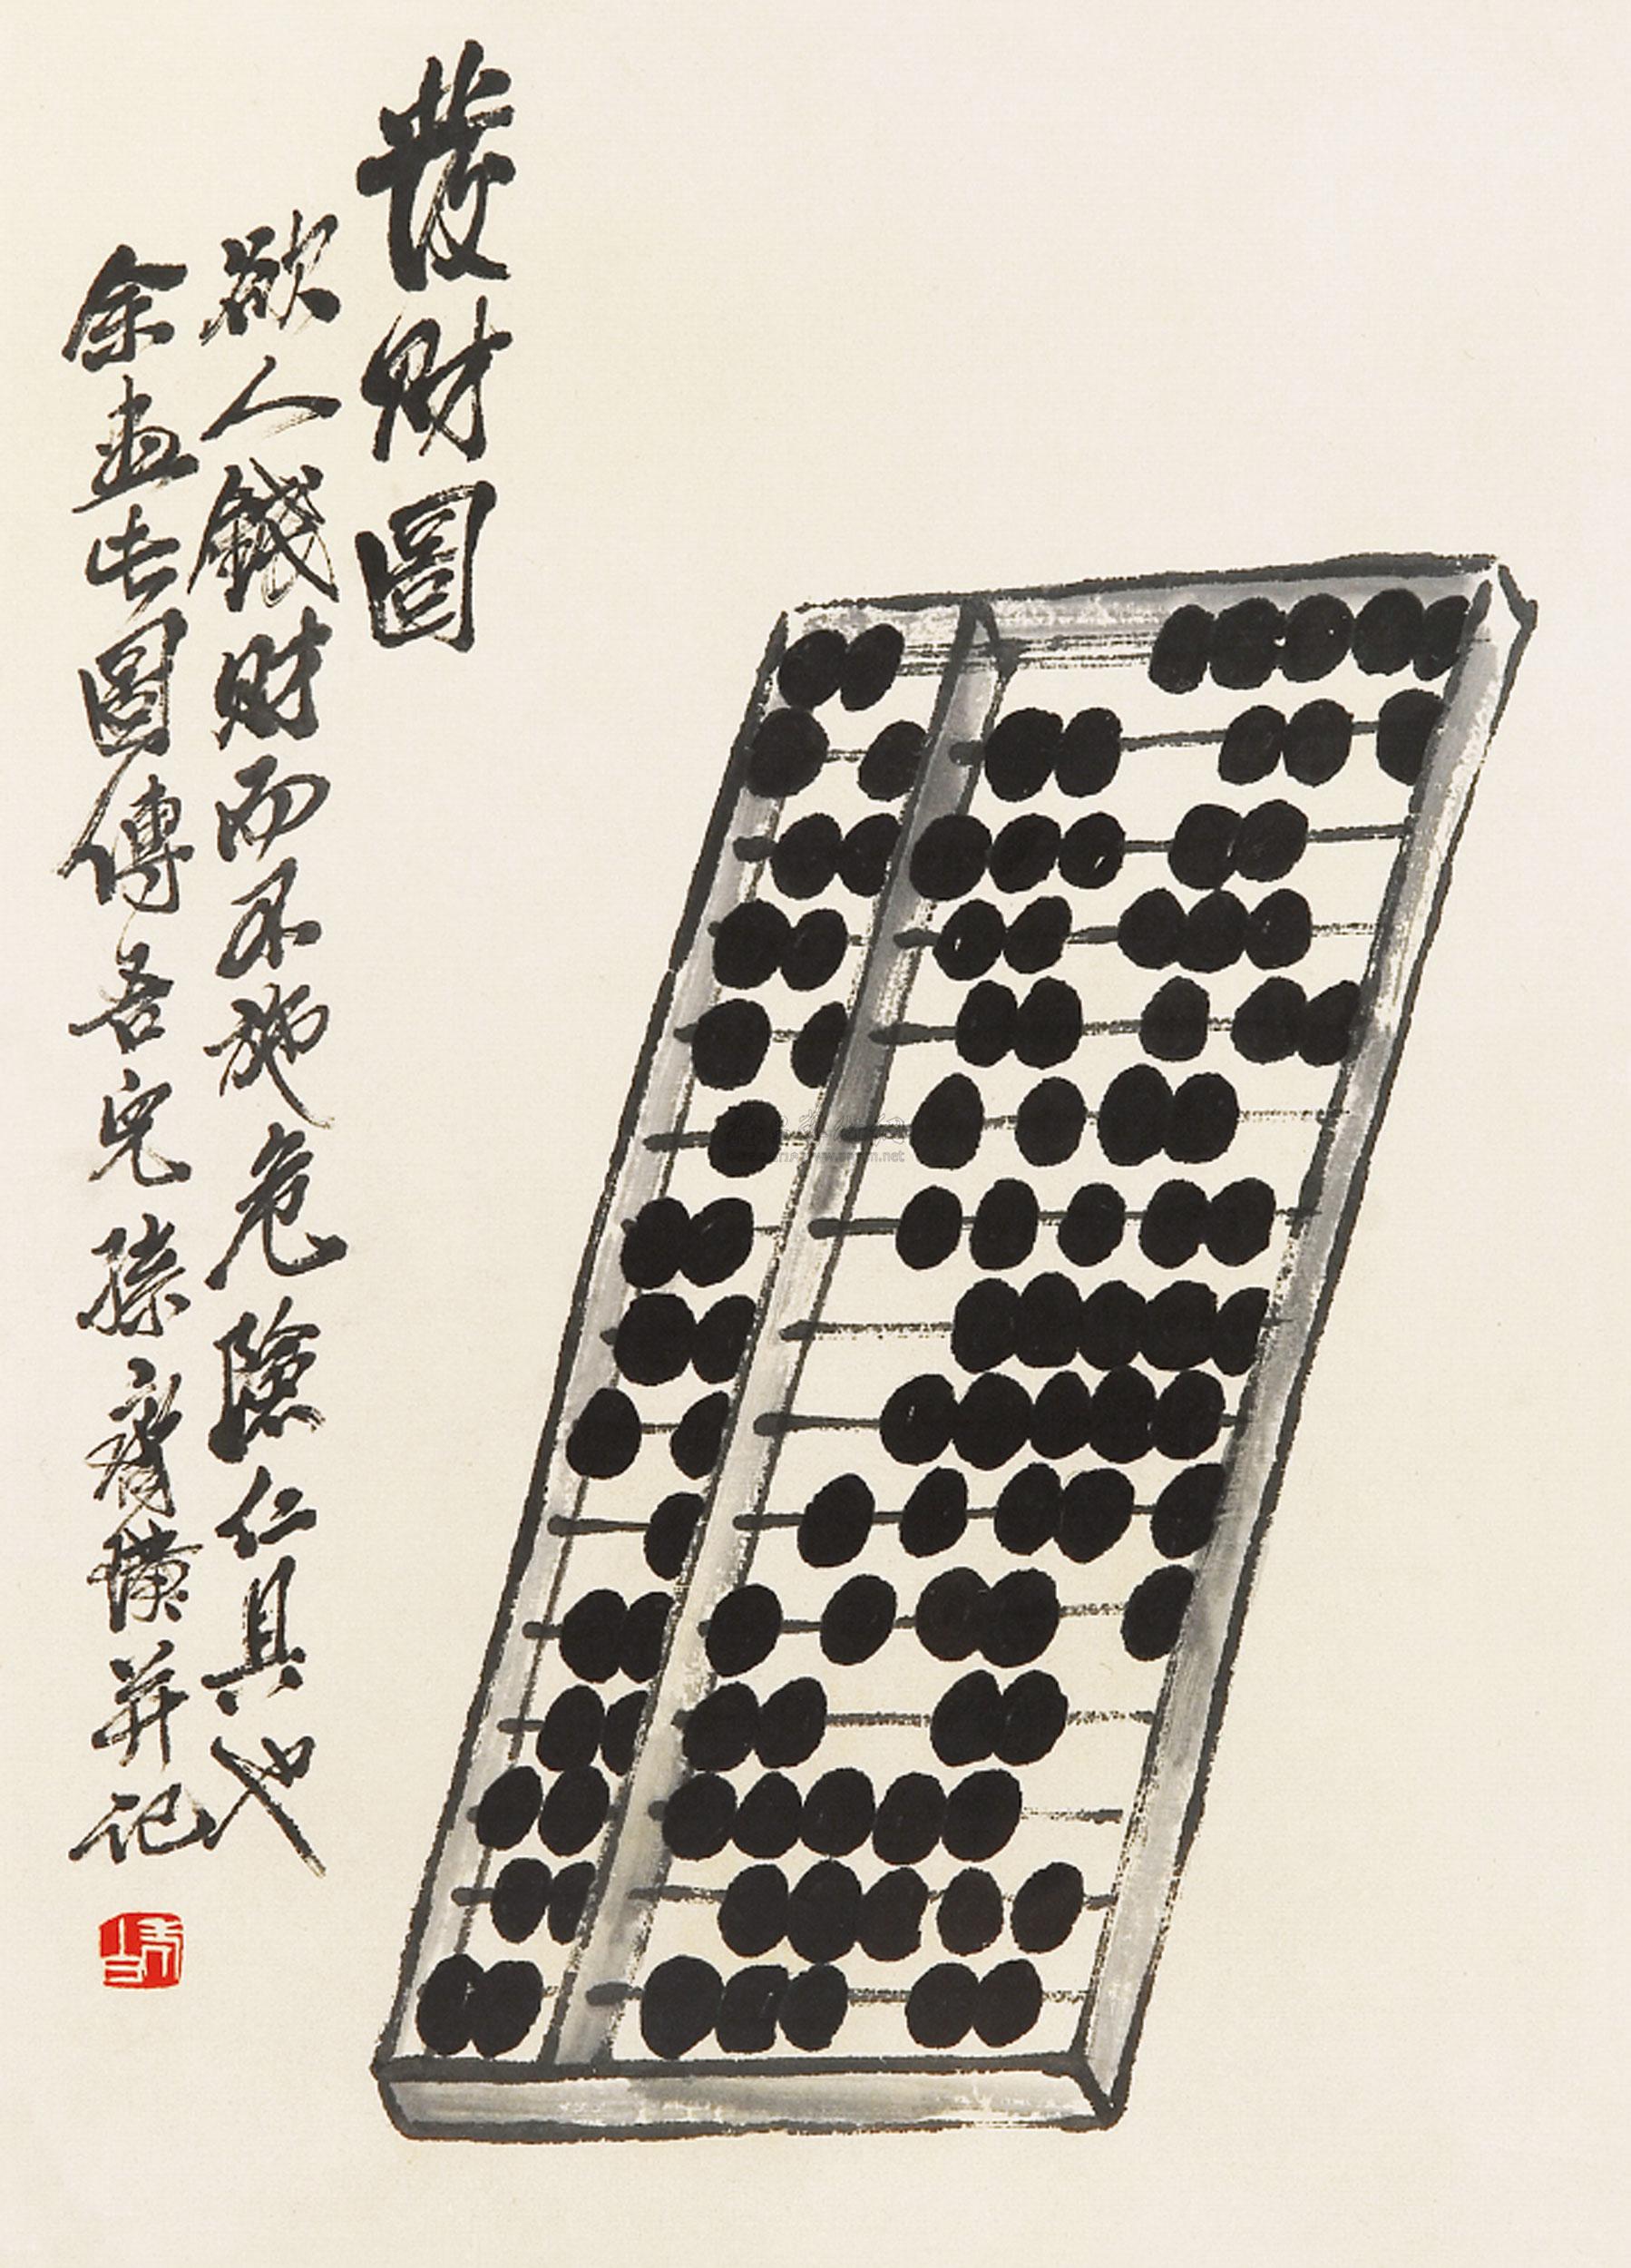 發財圖
欲人錢財而不施危險仁具也
余畫此圖傳吾兒孫齊璜並記